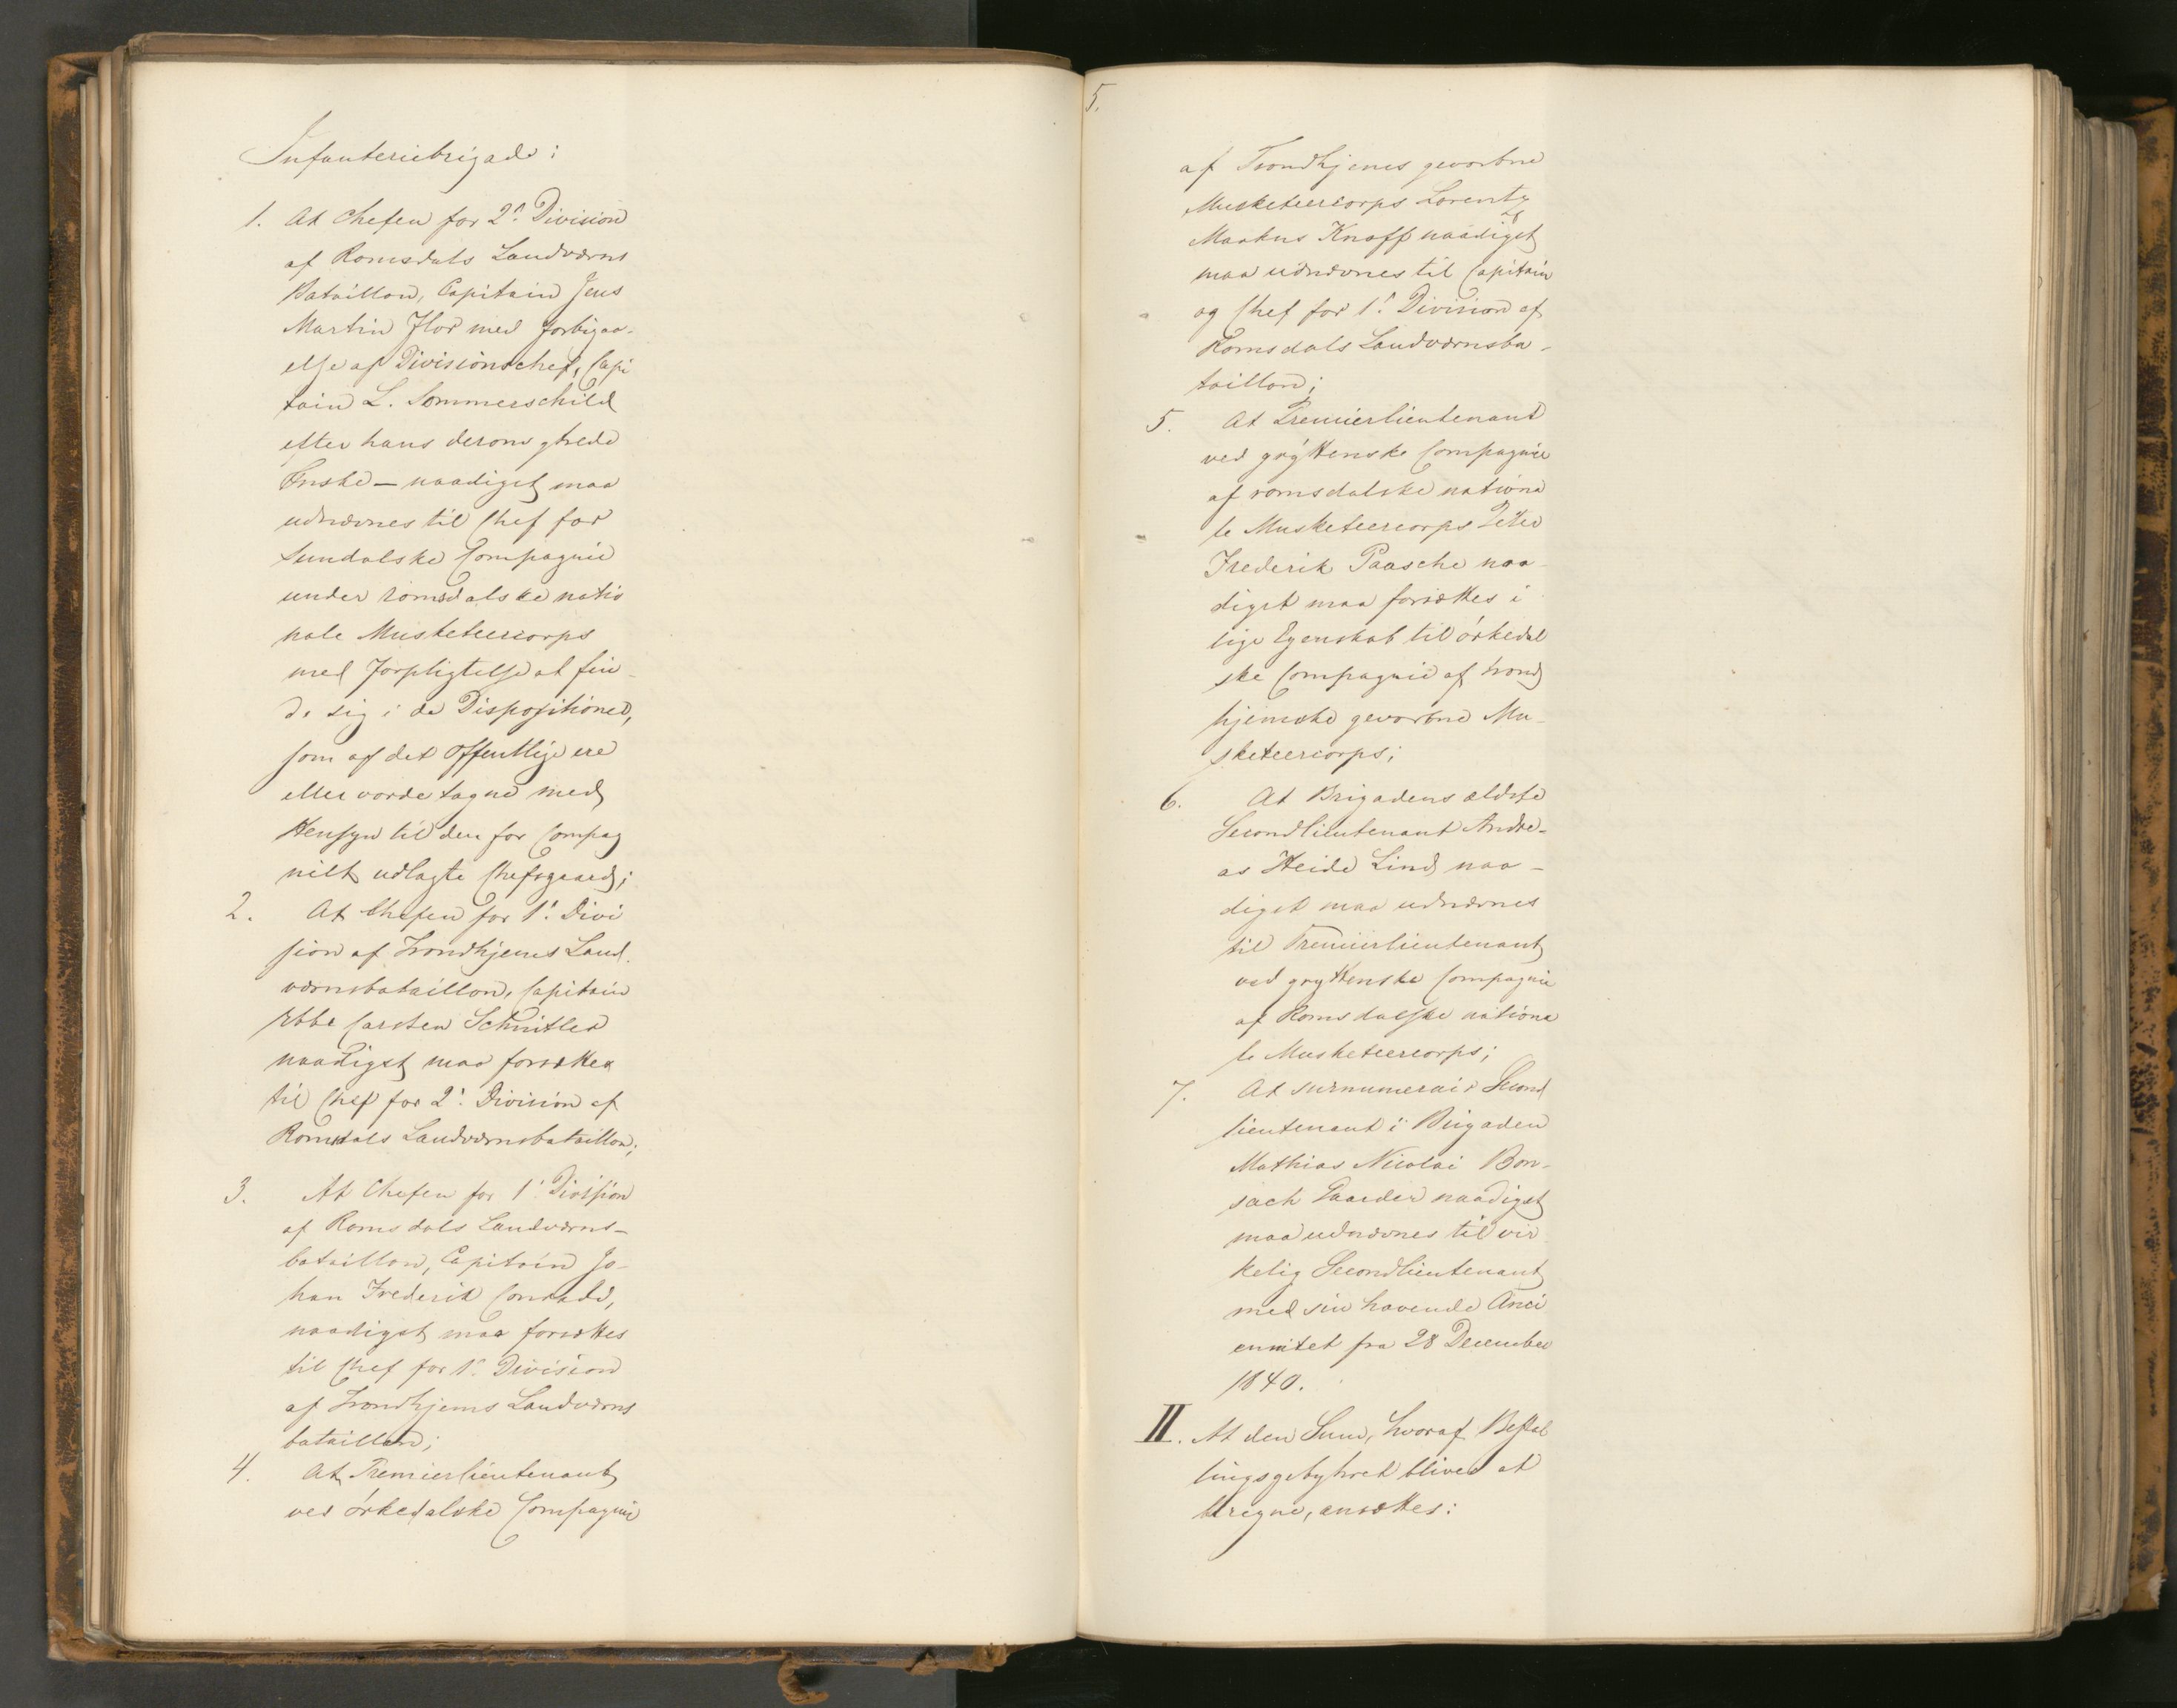 Infanteriebrigade:
1. At Chefen for 2n Division
af Romsdals Landværns
Bataillon, Capitain Jens
Martin Flor med Forbigaa-
else af Divisionschef, Capi
tain L. Sommerschild
efter hans derom ytrede
Ønske – naadigst maa
udnævnes til Chef for
Sundalske Compagnie
under romsdalske natio
nale Musketeercorps
med Forpligtelse at fin-
de sig i de Dispositioner,
som af det Offentlige ere
eller vorde tagne med
Hensyn til den for Compag
niet udlagte Chefsgaard;
2. At Chefen for 1e Divi
sion af Trondhjems Land-
værnsbataillon, Capitain
Ebbe Carsten Schnitler
naadigst maa forsættes
til Chef for 2n Division af
Romsdals Landværnsbataillon;
3. At Chefen for 1e Division
af Romsdals Landværns-
bataillon, Capitain Jo-
han Frederik Conradi,
naadigst maa forsættes
til Chef for 1e Division
af Trondhjems Landværns
bataillon;
4. At Premierlieutenant
ved örkedalske Compagnie
5.
af Trondhjems gevorbne
Musketeercorps Lorentz
Markus Knoff naadigst
maa udnævnes til Capitain
og Chef for 1e Division af
Romsdals Landværnsba-
taillon;
5. At Premierlieutenant
ved gryttenske Compagnie
af romsdalske nationa
le Musketeercorps Peter
Frederik Paasche naa-
digst maa forsættes i
lige Egenskab til örkedal
ske Compagnie af trond
hjemske gevorbne Mu-
sketeercorps;
6. At Brigadens ældste
Secondlieutenant Andre-
as Heide Lind naa-
digst maa udnævnes
til Premierlieutenant
ved gryttenske Compagnie
af Romsdalske nationa
le Musketeercorps;
7. At surnumerair Second
lieutenant i Brigaden
Mathias Nicolai Bon-
sach Gaarder naadigst
maa udnævnes til vir
kelig Secondlieutenant
med sin havende Anci
ennitet fra 28 December
1840.
II. At den Sum, hvoraf Bestal
lingsgebyhret bliver at
beregne, ansættes: